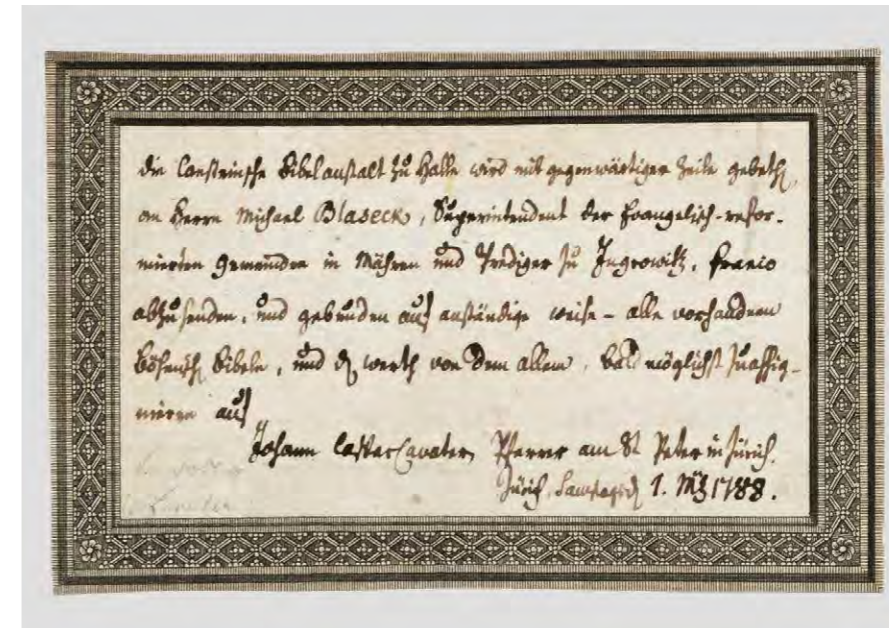 die Cansteinsche Bibelanstalt zu Halle wird mit gegenwärtiger Zeile gebethen,
an Herrn Michael Blaseck, Superintendent der Evangelisch-refor-
mierten Gemeinden in Mähren und Prediger zu Ingrowitz, franco
abzusenden, und gebunden auf anständige weise - alle vorhandnen
Böhmisch Bibeln, und den werth von dem allem, bald möglichst zu assig-
nieren auf
Johann Caspar Lavater, Pfarrer am St Peter in Zürich.
Zürich, Samstags den 1. Mz 1788.